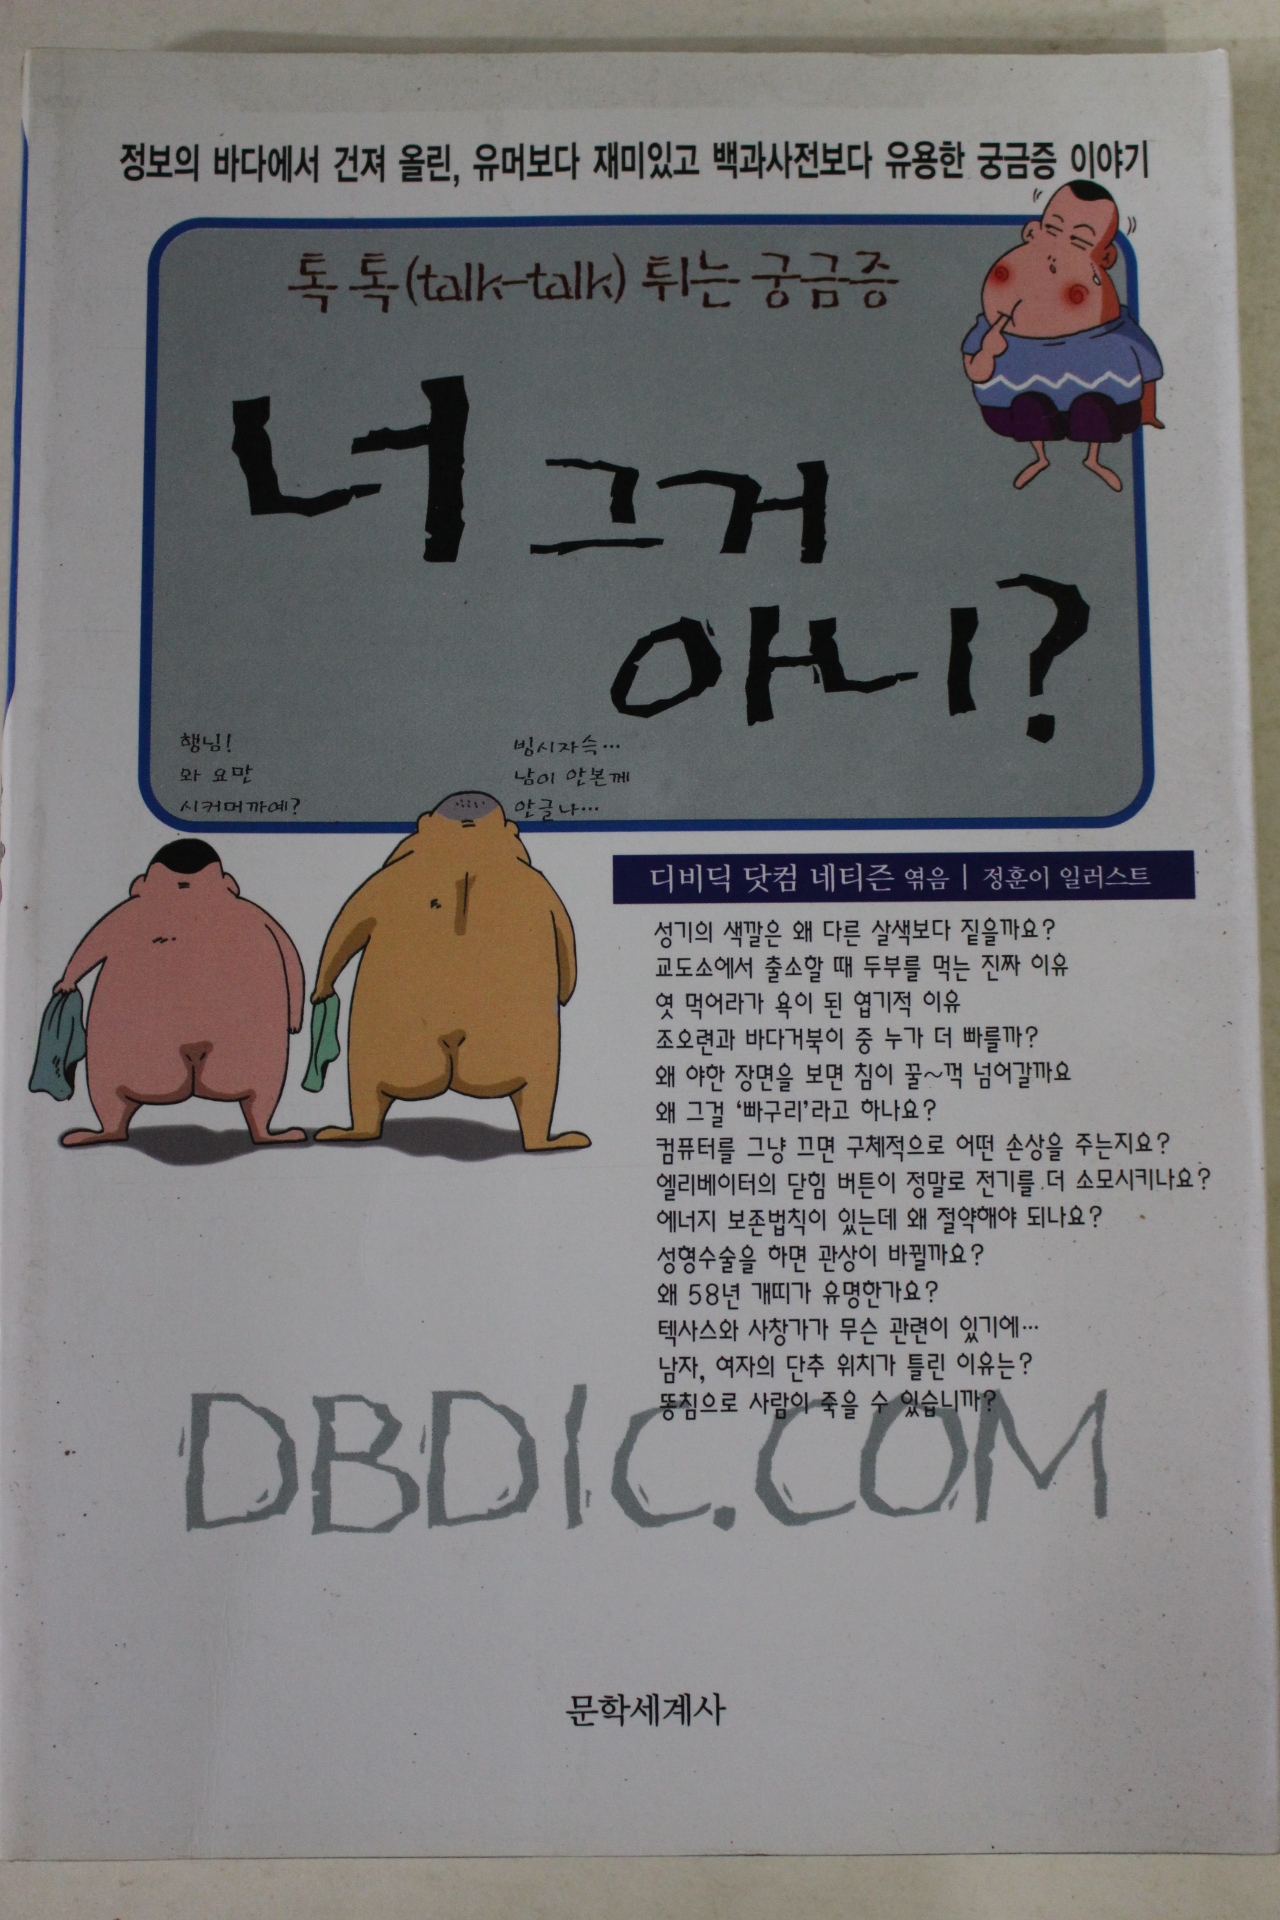 정보의 바다에서 건져 올린, 유머보다 재미있고 백과사전보다 유용한 궁금증 이야기
톡 톡(talk-talk) 튀는 궁금증
너 그거
아니?
행님!
와 요만
시커머까예?
빙시자슥…
남이 안본께
안글나…
디비딕 닷컴 네티즌 엮음 | 정훈이 일러스트
성기의 색깔은 왜 다른 살색보다 짙을까요?
교도소에서 출소할 때 두부를 먹는 진짜 이유
엿 먹어라가 욕이 된 엽기적 이유
조오련과 바다거북이 중 누가 더 빠를까?
왜 야한 장면을 보면 침이 꿀~꺽 넘어갈까요
왜 그걸 ‘빠구리’라고 하나요?
컴퓨터를 그냥 끄면 구체적으로 어떤 손상을 주는지요?
엘리베이터의 닫힘 버튼이 정말로 전기를 더 소모시키나요?
에너지 보존법칙이 있는데 왜 절약해야 되나요?
성형수술을 하면 관상이 바뀔까요?
왜 58년 개띠가 유명한가요?
텍사스와 사창가가 무슨 관련이 있기에…
남자, 여자의 단추 위치가 틀린 이유는?
똥침으로 사람이 죽을 수 있습니까?
DBDIC.COM
문학세계사